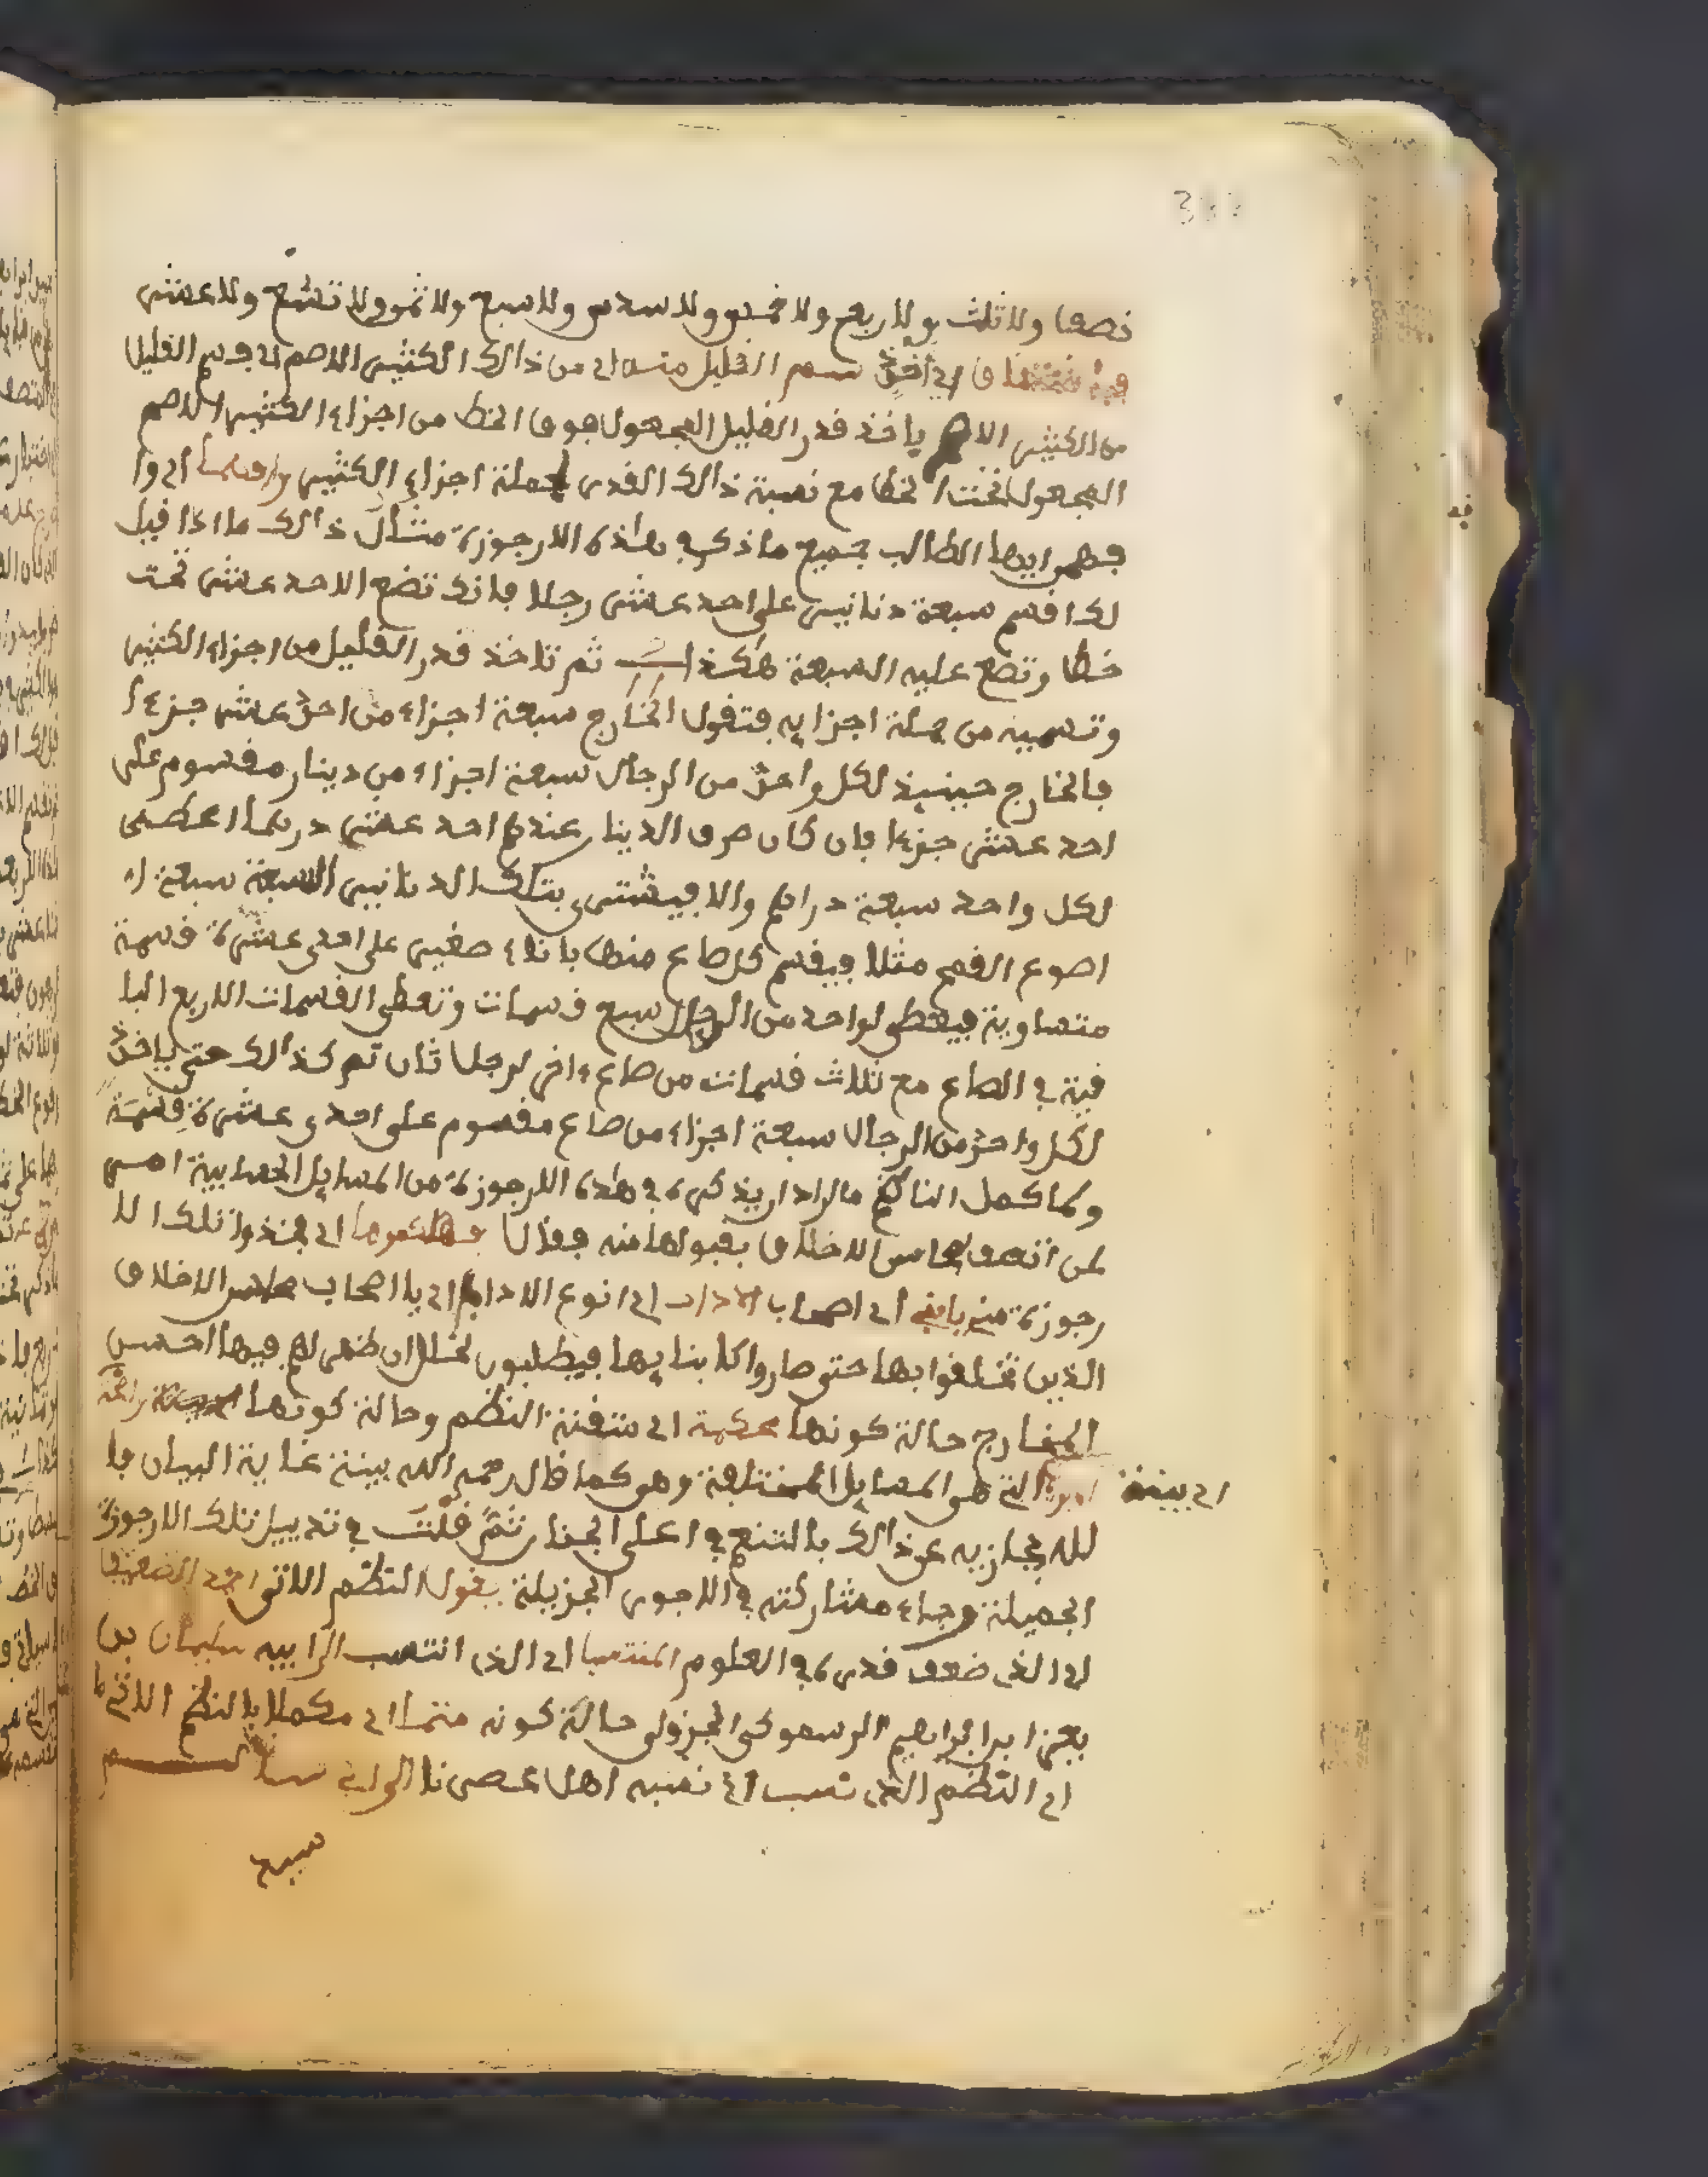 نصفا ولا ثلث ولا ربع ولا خمس ولا سدس ولا سبع ولا ثمن ولا تسع ولا عشر
اي أخذ سم القليل منه اي من ذالك الكثير الاصم اي قسم القليل
من الكثير الاصم ياخذ قدر القليل المجعول فوق الخط من اجزاء الكثير الاصم
المجعول تحت الخط مع نسبة ذالك القدر لجملة اجزاء الكثير وافهما اي وا
فهموا ايها الطالب جميع ما ذكر في هاذه الارجوزة مثال ذالك ما اذا قيل
لك اقسم سبعة دنانير على احد عشر رجلا فانك تضع الاحد عشر تحت
خط وتضع عليه السبعة هكذا ثم تاخذ قدر القليل من اجزاء الكثير
وتسميه من جملة اجزايه فتقول الخارج سبعة اجزاء من احد عشر جزءا
فالخارج حينيذ لكل واحد من الرجال سبعة اجزاء من دينار مقسوم على
احد عشر جزءا فان كان صرف الدينار عندهم احد عشر درهما اعطى
لكل واحد سبعة دراهم والا فيشترى بتلك الدنانير السبعة سبعة ا
اصوع القمح مثلا فيقسم كل صاع منها باناء صغير على احدى عشرة قسمة
متساوية فيعطى لواحد من الرجال سبع قسمات وتعطى القسمات الاربع البا
قية في الصاع مع ثلاث قسمات من صاع ءاخر لرجل ثان ثم كذالك حتى ياخذ
لكل واحد من الرجال سبعة اجزاء من صاع مقسوم على احدى عشرة قسمة
ولما كمل الناظم ما اراد ان يذكره في هذه الارجوزة من المسايل الحسابية امر
لمن اتصف بمحاسن الاخلاق بقبولها منه فقال فهاكموها اي فخذوا تلك الا
رجوزة مني يا اصحاب الاداب اي انوع الاداب اي يا اصحاب محاسن الاخلاق
الذين تخلقوا بها حتى صاروا كابنايها فيطلبون لخلل ان ظهر لهم فيها احسن
المخارج حالة كونها محكمة اي متقنة النظم وحالة كونها
اي بينة التي هي المسايل المختلفة وهي كما قال رحمه الله بينة غاية البيان فا
لله يجازيه عن ذالك بالتنعم في اعلى الجنان ثم قلت في تذييل تلك الارجوزة
الجميلة رجاء مشاركته في الاجور الجزيلة يقول النظم الاتي الضعيف
اي الذي ضعف قدره في العلوم المنتسبا اي الذي انتسب الى ابيه سليمان بن
يعزا بن ابراهيم الرسموكي الجزولي حالة كونه متمما اي مكملا بالنظم الاتي ما
اي النظم الذي نسب اي نسبه اهل عصرنا الى